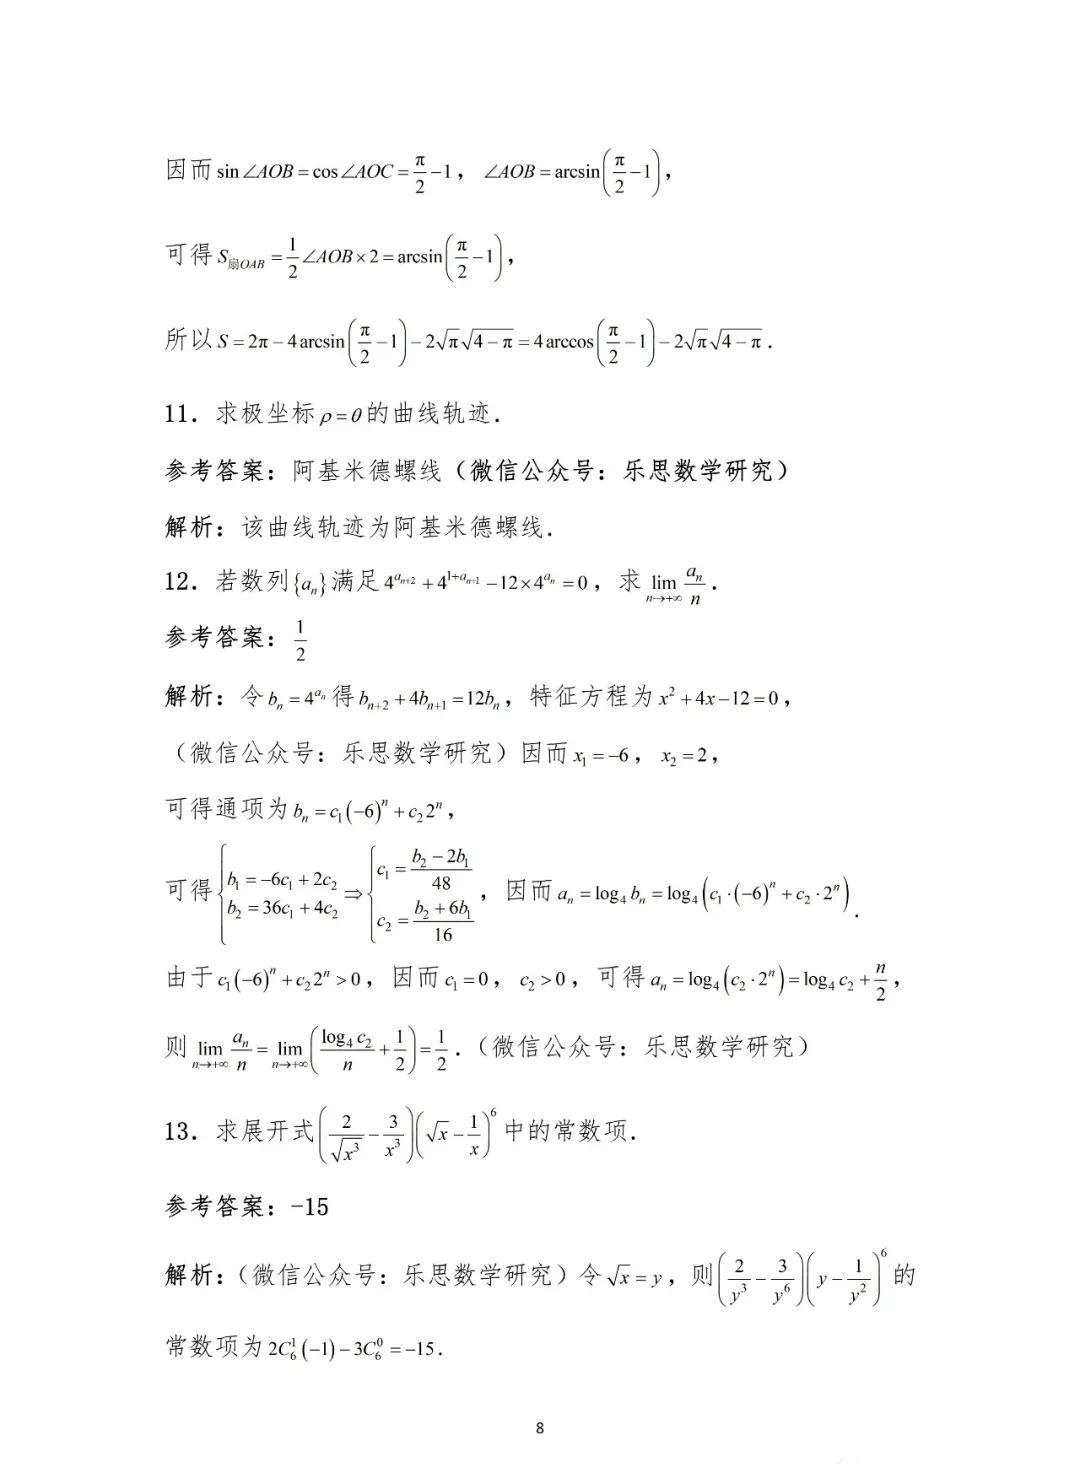 因而 sin∠AOB = cos∠AOC = π/2 − 1， ∠AOB = arcsin(π/2 − 1)，
可得 S扇OAB = 1/2 ∠AOB × 2 = arcsin(π/2 − 1)，
所以 S = 2π − 4arcsin(π/2 − 1) − 2√π√(4 − π) = 4arccos(π/2 − 1) − 2√π√(4 − π)．
11．求极坐标 ρ = θ 的曲线轨迹．
参考答案：阿基米德螺线（微信公众号：乐思数学研究）
解析：该曲线轨迹为阿基米德螺线．
12．若数列{aₙ}满足 4^(a_{n+2}) + 4^(1+a_{n+1}) − 12 × 4^(a_n) = 0，求 lim_{n→+∞} a_n/n．
参考答案：1/2
解析：令 b_n = 4^(a_n) 得 b_{n+2} + 4b_{n+1} = 12b_n，特征方程为 x² + 4x − 12 = 0，
（微信公众号：乐思数学研究）因而 x₁ = −6， x₂ = 2，
可得通项为 b_n = c₁(−6)^n + c₂2^n，
可得 { b₁ = −6c₁ + 2c₂ b₂ = 36c₁ + 4c₂ ⇒ { c₁ = (b₂ − 2b₁)/48 c₂ = (b₂ + 6b₁)/16 ，因而 a_n = log₄ b_n = log₄(c₁·(−6)^n + c₂·2^n)．
由于 c₁(−6)^n + c₂2^n > 0，因而 c₁ = 0， c₂ > 0，可得 a_n = log₄(c₂·2^n) = log₄ c₂ + n/2，
则 lim_{n→+∞} a_n/n = lim_{n→+∞} (log₄ c₂/n + 1/2) = 1/2．（微信公众号：乐思数学研究）
13．求展开式 (2/√(x³) − 3/x³)(√x − 1/x)⁶ 中的常数项．
参考答案：-15
解析：（微信公众号：乐思数学研究）令 √x = y，则 (2/y³ − 3/y⁶)(y − 1/y²)⁶ 的
常数项为 2C₆¹(−1) − 3C₆⁰ = −15．
8